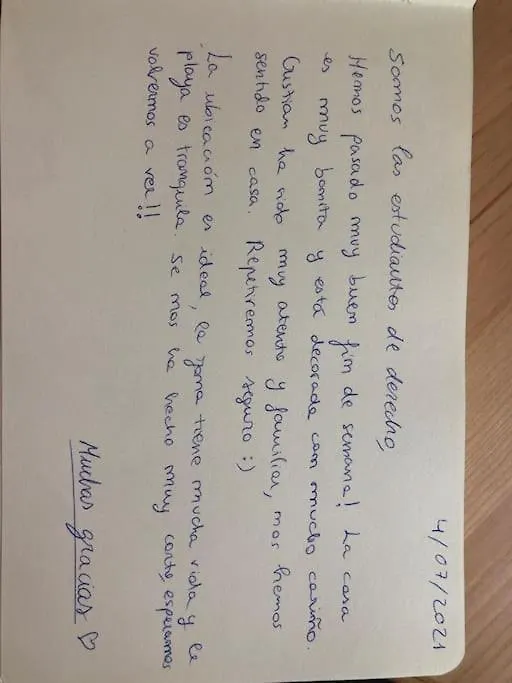 4/07/2021
Somos las estudiantes de derecho,
Hemos pasado muy buen fin de semana! La casa
es muy bonita y está decorada con mucho cariño.
Cristian ha sido muy atento y familiar, nos hemos
sentido en casa. Repetiremos seguro :)
La ubicación es ideal, la zona tiene mucha vida y la
playa es tranquila. Se nos ha hecho muy corto, esperamos
volvernos a ver!!
Muchas gracias ♡